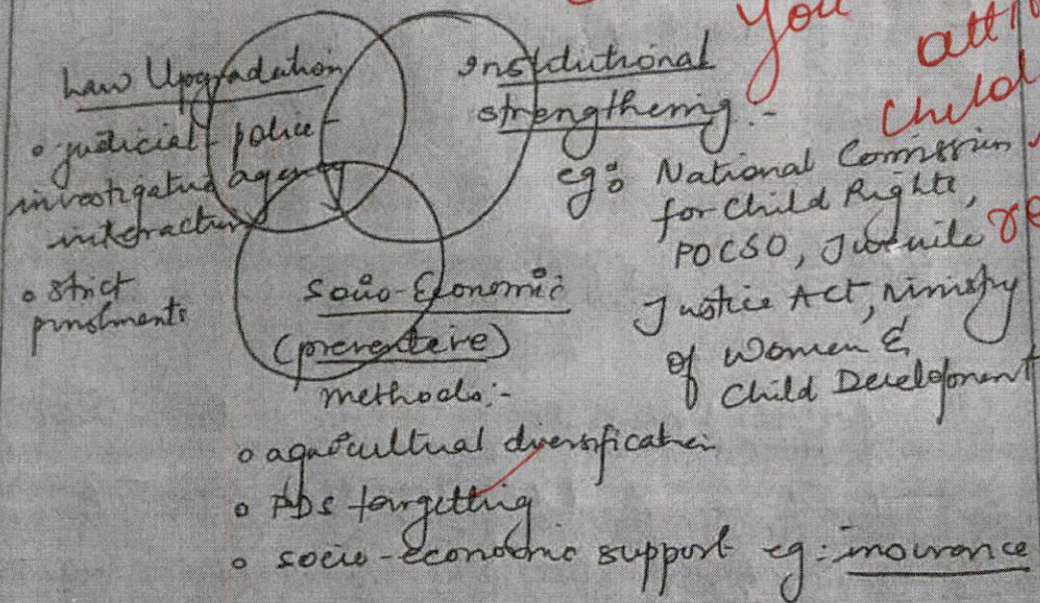 You
att
Child
Law Upgradation
• judicial - police -
investigative agency
interaction
• strict
punishments
Institutional
strengthening :-
eg: National Commission
for Child Rights,
POCSO, Juvenile
Justice Act, Ministry
of Women &
Child Development
re
Socio-Economic
(preventive)
methods:-
o agricultural diversification
o PDS targetting
o socio-economic support eg: insurance